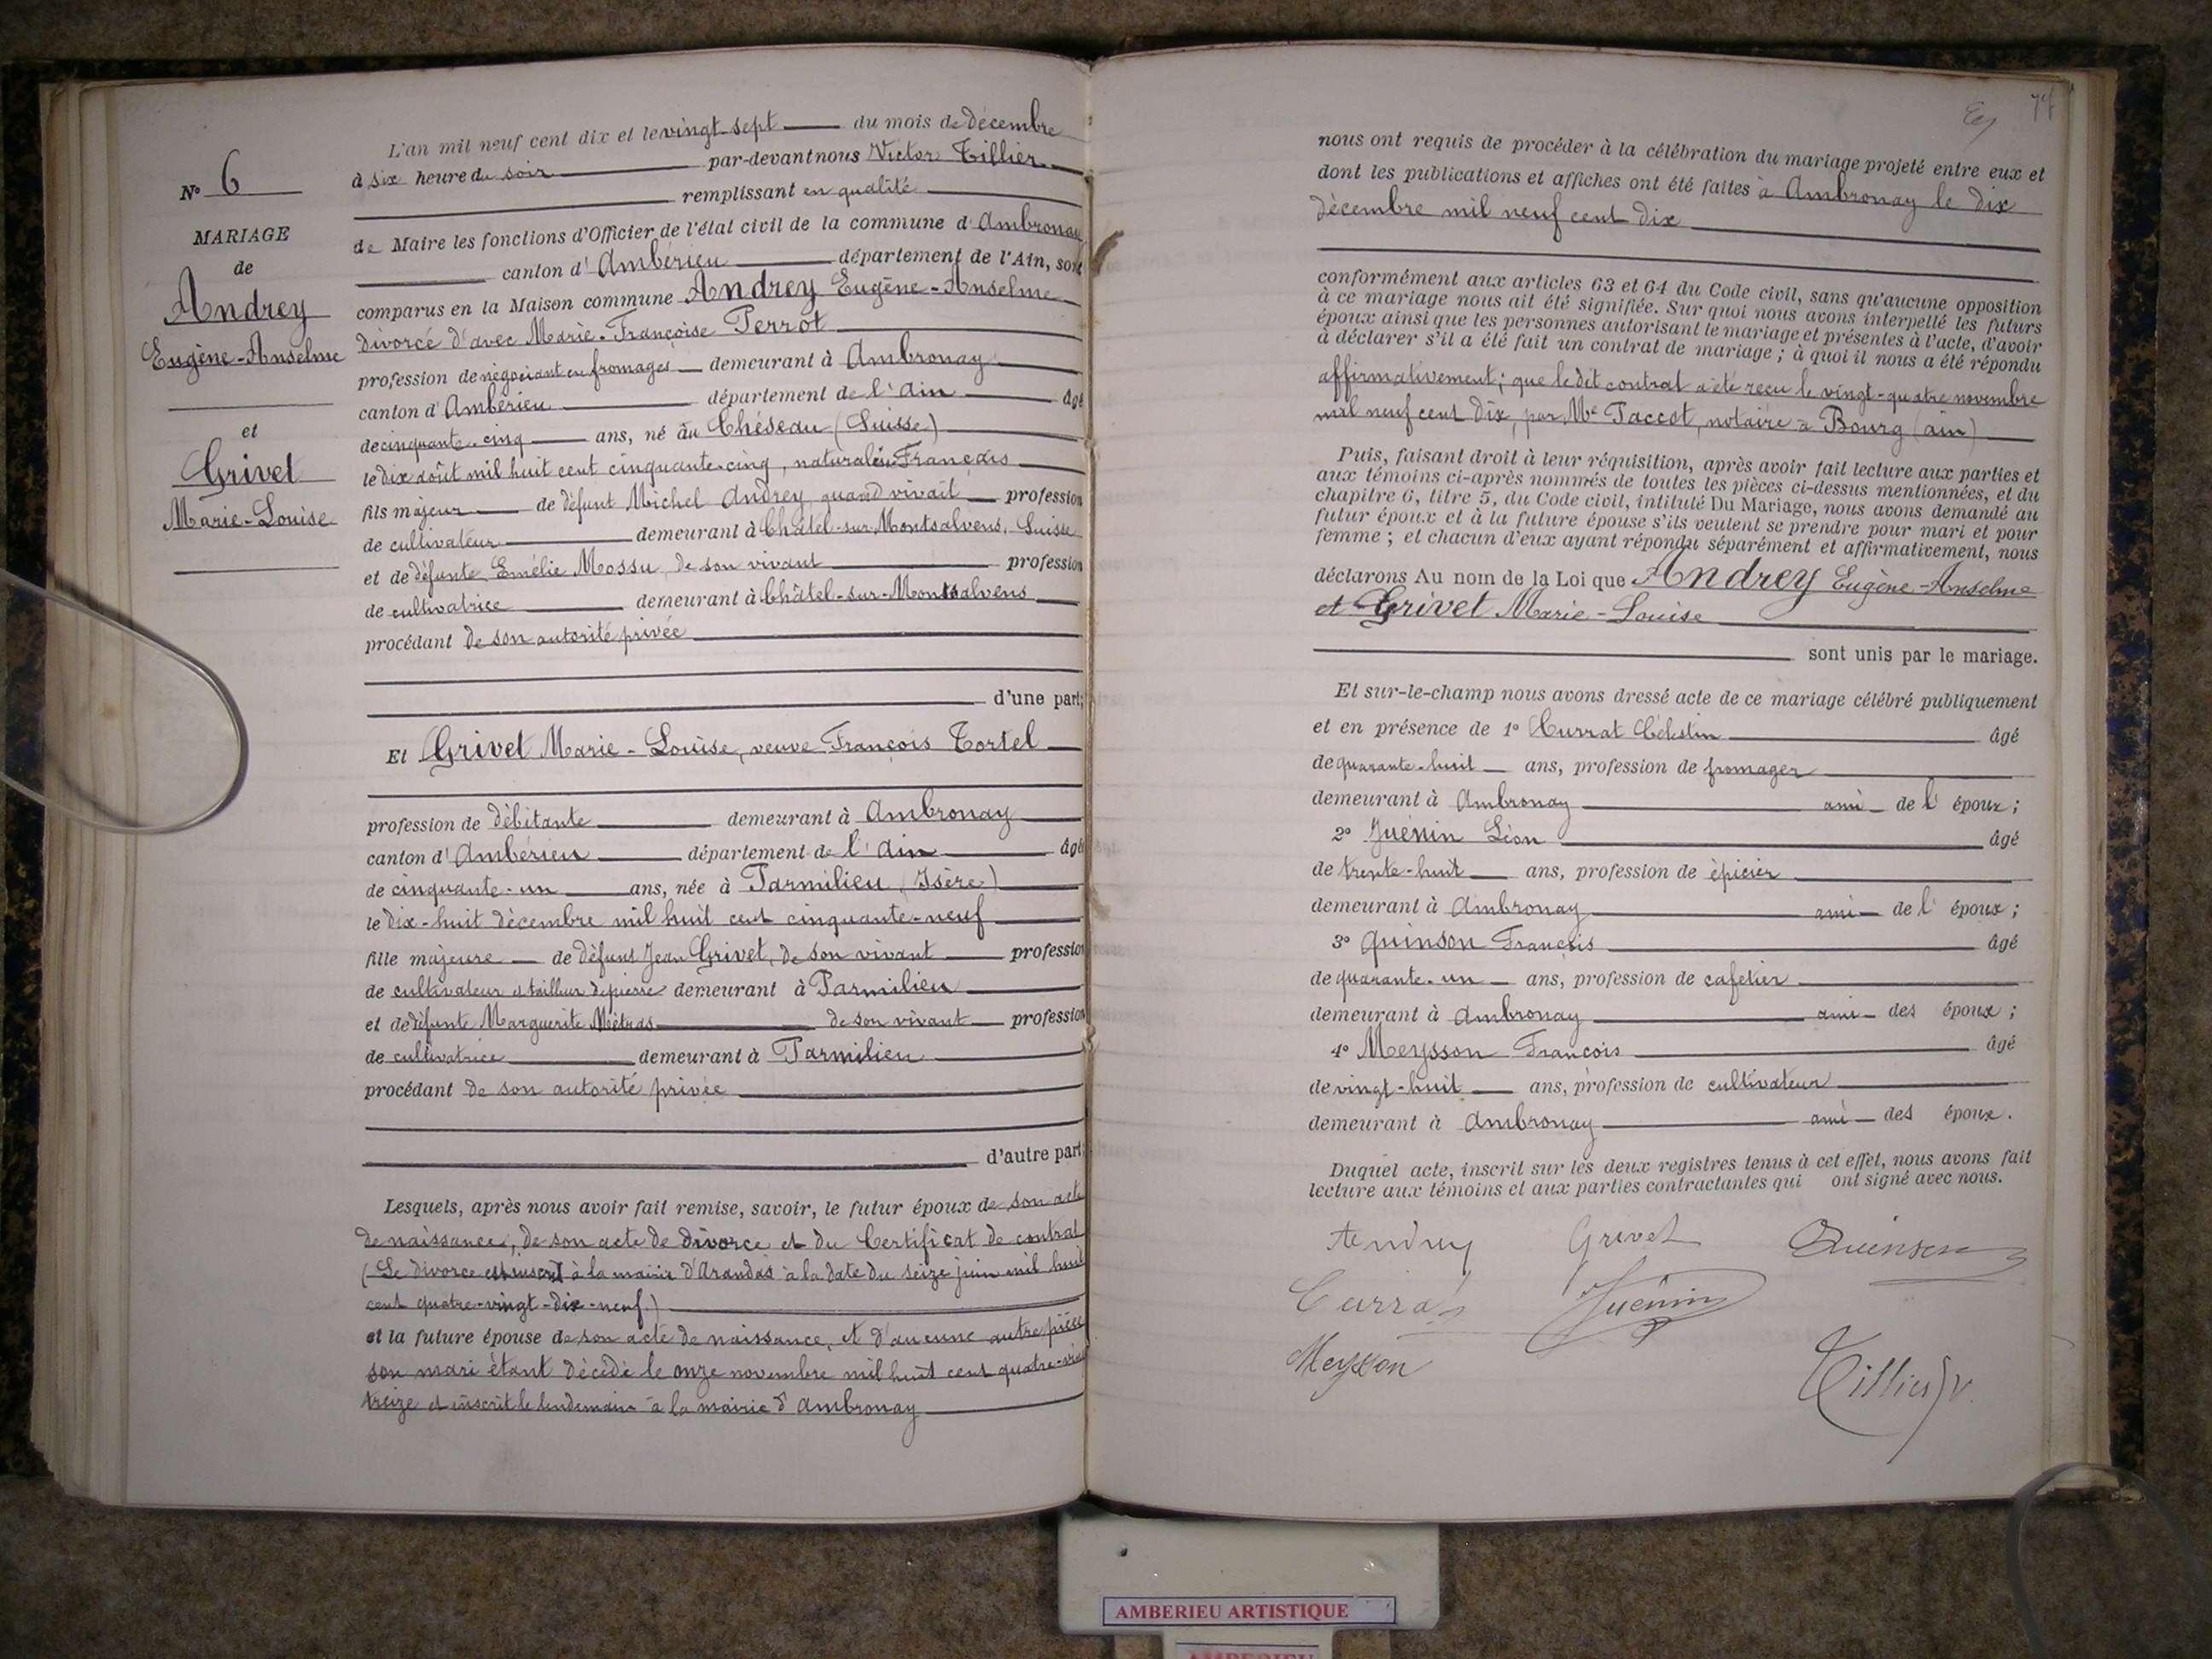 N° 6
MARIAGE
de
Andrey
Eugène-Anselme
et
Grivet
Marie-Louise
L'an mil neuf cent dix et le vingt-sept du mois de décembre
à six heure du soir par-devant nous Victor Tillier
remplissant en qualité
de Maire les fonctions d'Officier de l'état civil de la commune d'Ambronay
canton d'Ambérieu département de l'Ain, sont
comparus en la Maison commune Andrey Eugène-Anselme
divorcé d'avec Marie-Françoise Perrot
profession de négociant en fromages demeurant à Ambronay
canton d'Ambérieu département de l'Ain âgé
de cinquante-cinq ans, né au Chéseau (Suisse)
le dix août mil huit cent cinquante-cinq, Français
fils majeur de défunt Michel Andrey quand vivait profession
de cultivateur demeurant à Châtel-sur-Montsalvens, Suisse
et de défunte Emélie Mossu, de son vivant profession
de cultivatrice demeurant à Châtel-sur-Montsalvens
procédant de son autorité privée
d'une part;
Et Grivet Marie-Louise, veuve François Tortel
profession de débitante demeurant à Ambronay
canton d'Ambérieu département de l'Ain âgé
de cinquante-un ans, née à Parmilieu (Isère)
le dix-huit décembre mil huit cent cinquante-neuf
fille majeure de défunt Jean Grivet, de son vivant profession
de cultivateur et tailleur de pierre demeurant à Parmilieu
et de défunte Marguerite Métras de son vivant profession
de cultivatrice demeurant à Parmilieu
procédant de son autorité privée
d'autre part;
Lesquels, après nous avoir fait remise, savoir, le futur époux de son acte
de naissance, de son acte de divorce et du Certificat de contrat
(Le divorce est inscrit à la mairie d'Arandas à la date du seize juin mil huit
cent quatre-vingt-dix-neuf.)
et la future épouse de son acte de naissance, et d'aucune autre pièce
son mari étant décédé le onze novembre mil huit cent quatre-vingt
treize et inscrit le lendemain à la mairie d'Ambronay
nous ont requis de procéder à la célébration du mariage projeté entre eux et
dont les publications et affiches ont été faites à Ambronay le dix
décembre mil neuf cent dix
conformément aux articles 63 et 64 du Code civil, sans qu'aucune opposition
à ce mariage nous ait été signifiée. Sur quoi nous avons interpellé les futurs
époux ainsi que les personnes autorisant le mariage et présentes à l'acte, d'avoir
à déclarer s'il a été fait un contrat de mariage ; à quoi il nous a été répondu
affirmativement ; que le dit contrat a été reçu le vingt-quatre novembre
mil neuf cent dix, par Me Paccot, notaire à Bourg (ain)
Puis, faisant droit à leur réquisition, après avoir fait lecture aux parties et
aux témoins ci-après nommés de toutes les pièces ci-dessus mentionnées, et du
chapitre 6, titre 5, du Code civil, intitulé Du Mariage, nous avons demandé au
futur époux et à la future épouse s'ils veulent se prendre pour mari et pour
femme ; et chacun d'eux ayant répondu séparément et affirmativement, nous
déclarons Au nom de la Loi que Andrey Eugène-Anselme
et Grivet Marie-Louise
sont unis par le mariage.
Et sur-le-champ nous avons dressé acte de ce mariage célébré publiquement
et en présence de 1° Currat Célestin âgé
de quarante-huit ans, profession de fromager
demeurant à Ambronay ami de l'époux ;
2° Juénin Léon âgé
de trente-huit ans, profession de épicier
demeurant à Ambronay ami de l'époux ;
3° Quinson François âgé
de quarante-un ans, profession de cafetier
demeurant à Ambronay ami des époux ;
4° Meysson François âgé
de vingt-huit ans, profession de cultivateur
demeurant à Ambronay ami des époux.
Duquel acte, inscrit sur les deux registres tenus à cet effet, nous avons fait
lecture aux témoins et aux parties contractantes qui ont signé avec nous.
Andrey Grivet Quinson
Currat Juénin
Meysson
Tillier V.
AMBERIEU ARTISTIQUE
AMBERIEU